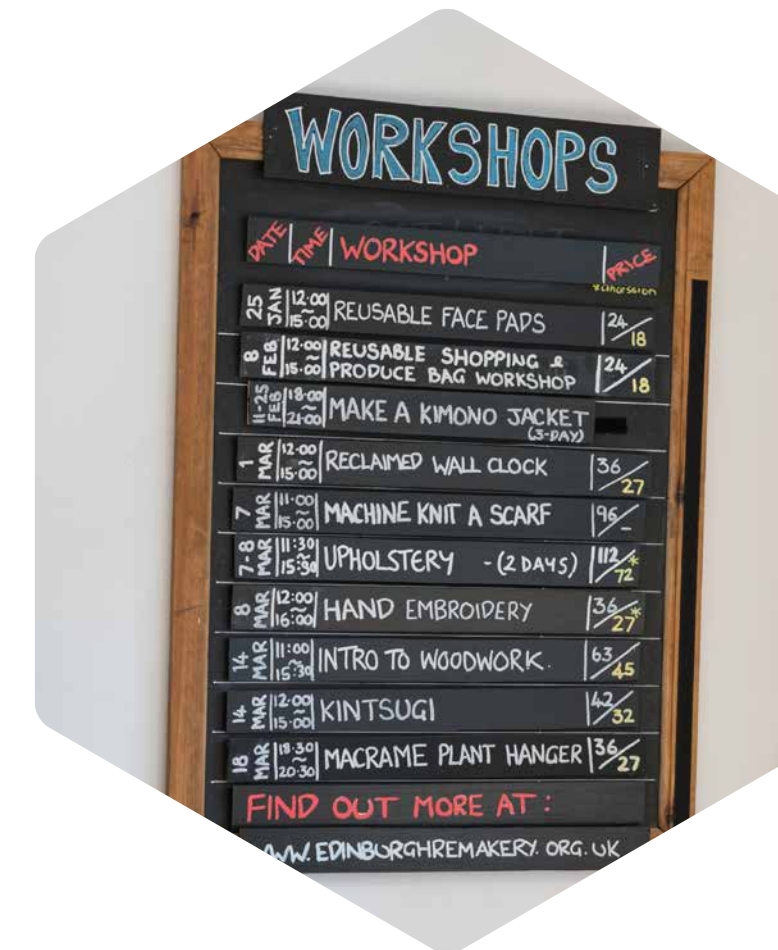 WORKSHOPS
DATE TIME WORKSHOP PRICE
*CONCESSION
25 JAN 12·00 ~ 15·00 REUSABLE FACE PADS 24/18
8 FEB 12·00 ~ 15·00 REUSABLE SHOPPING & PRODUCE BAG WORKSHOP 24/18
11-25 FEB 18·00 ~ 21·00 MAKE A KIMONO JACKET (3-DAY)
1 MAR 12·00 ~ 15·00 RECLAIMED WALL CLOCK 36/27
7 MAR 11·00 ~ 15·00 MACHINE KNIT A SCARF 96/-
7-8 MAR 11:30 ~ 15:30 UPHOLSTERY - (2 DAYS) 112/72*
8 MAR 12:00 ~ 16:00 HAND EMBROIDERY 36/27*
14 MAR 11:00 ~ 15:30 INTRO TO WOODWORK. 63/45
14 MAR 12·00 ~ 15·00 KINTSUGI 42/32
18 MAR 18·30 ~ 20·30 MACRAME PLANT HANGER 36/27
FIND OUT MORE AT :
WW. EDINBURGHREMAKERY. ORG. UK